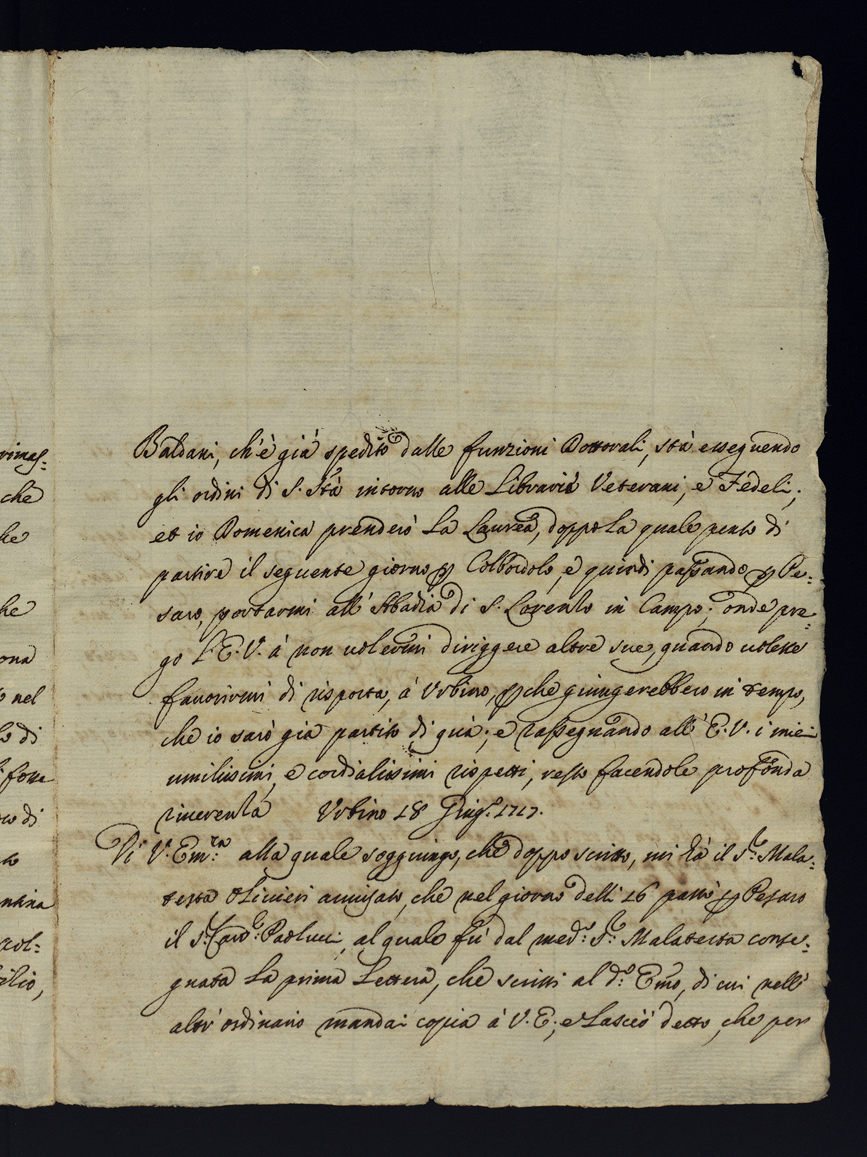 rimes=
che
he
he
ona
nel
di
fosse
to di
ntina
col=
ilio,
Baldani, ch'è già spedito dalle funzioni Dottorali, stà esseguendo
gli ordini di S. Stà intorno alle Librarie Veterani, e Fedeli;
et io Domenica prenderò la Laurea, doppo la quale penso di
partire il seguente giorno p Colbordolo, e quindi passando p Pe=
saro, portarmi all'Abadia di S. Lorenzo in Campo; onde pre=
go l'E.V. à non volermi diriggere altre sue, quando volesse
favorirmi di risposta, à Urbino, pche giungerebbero in tempo,
che io sarò già partito di quà; e rassegnando all'E.V. i miei
umilissimi, e cordialissimi rispetti, resto facendole profonda
riverenza Urbino 18 Giug.º 1717.
Di V. Em.za alla quale soggiungo, che doppo scritto, mi dà il S.r Mala=
testa Olivieri avvisato, che nel giorno delli 16 passò p Pesaro
il S.r Card.l Paolucci, al quale fù dal med.º S.r Malatesta conse=
gnata la prima Lettera, che scrissi al d.º Emo, di cui nell'
altr'ordinario mandai copia à V.E; e lasciò detto, che per